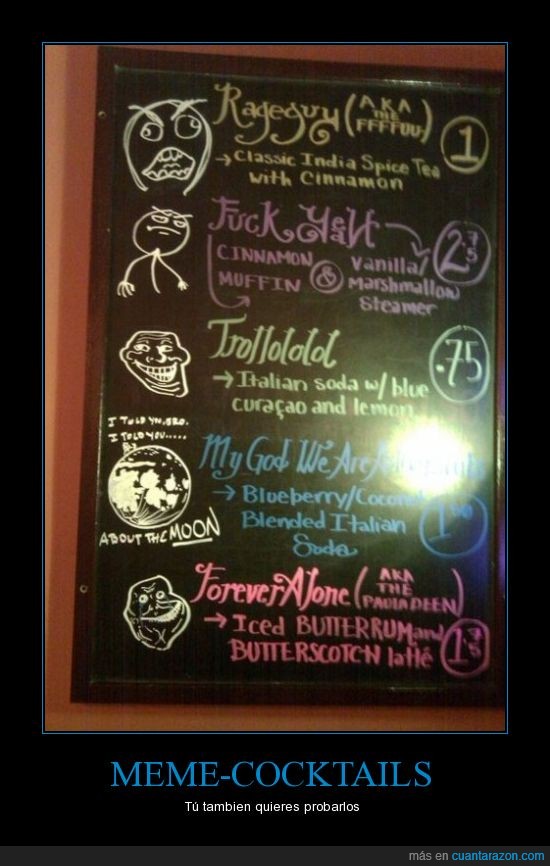 Rageguy (AKA THE FFFFUU-) 1
→ Classic India Spice Tea
with Cinnamon
Fuck Yeah 2.75
CINNAMON MUFFIN & Vanilla/
Marshmallow
Steamer
Trollololol .75
→ Italian soda w/ blue
curaçao and lemon
I TOLD YN, BRO.
I TOLD YOU.....
ABOUT THE MOON
My God We Are
→ Blueberry/Coconut
Blended Italian
Soda
ForeverAlone (AKA THE PAULA DEEN)
→ Iced BUTTERRUM and
BUTTERSCOTCH latté 1.75
MEME-COCKTAILS
Tú tambien quieres probarlos
más en cuantarazon.com